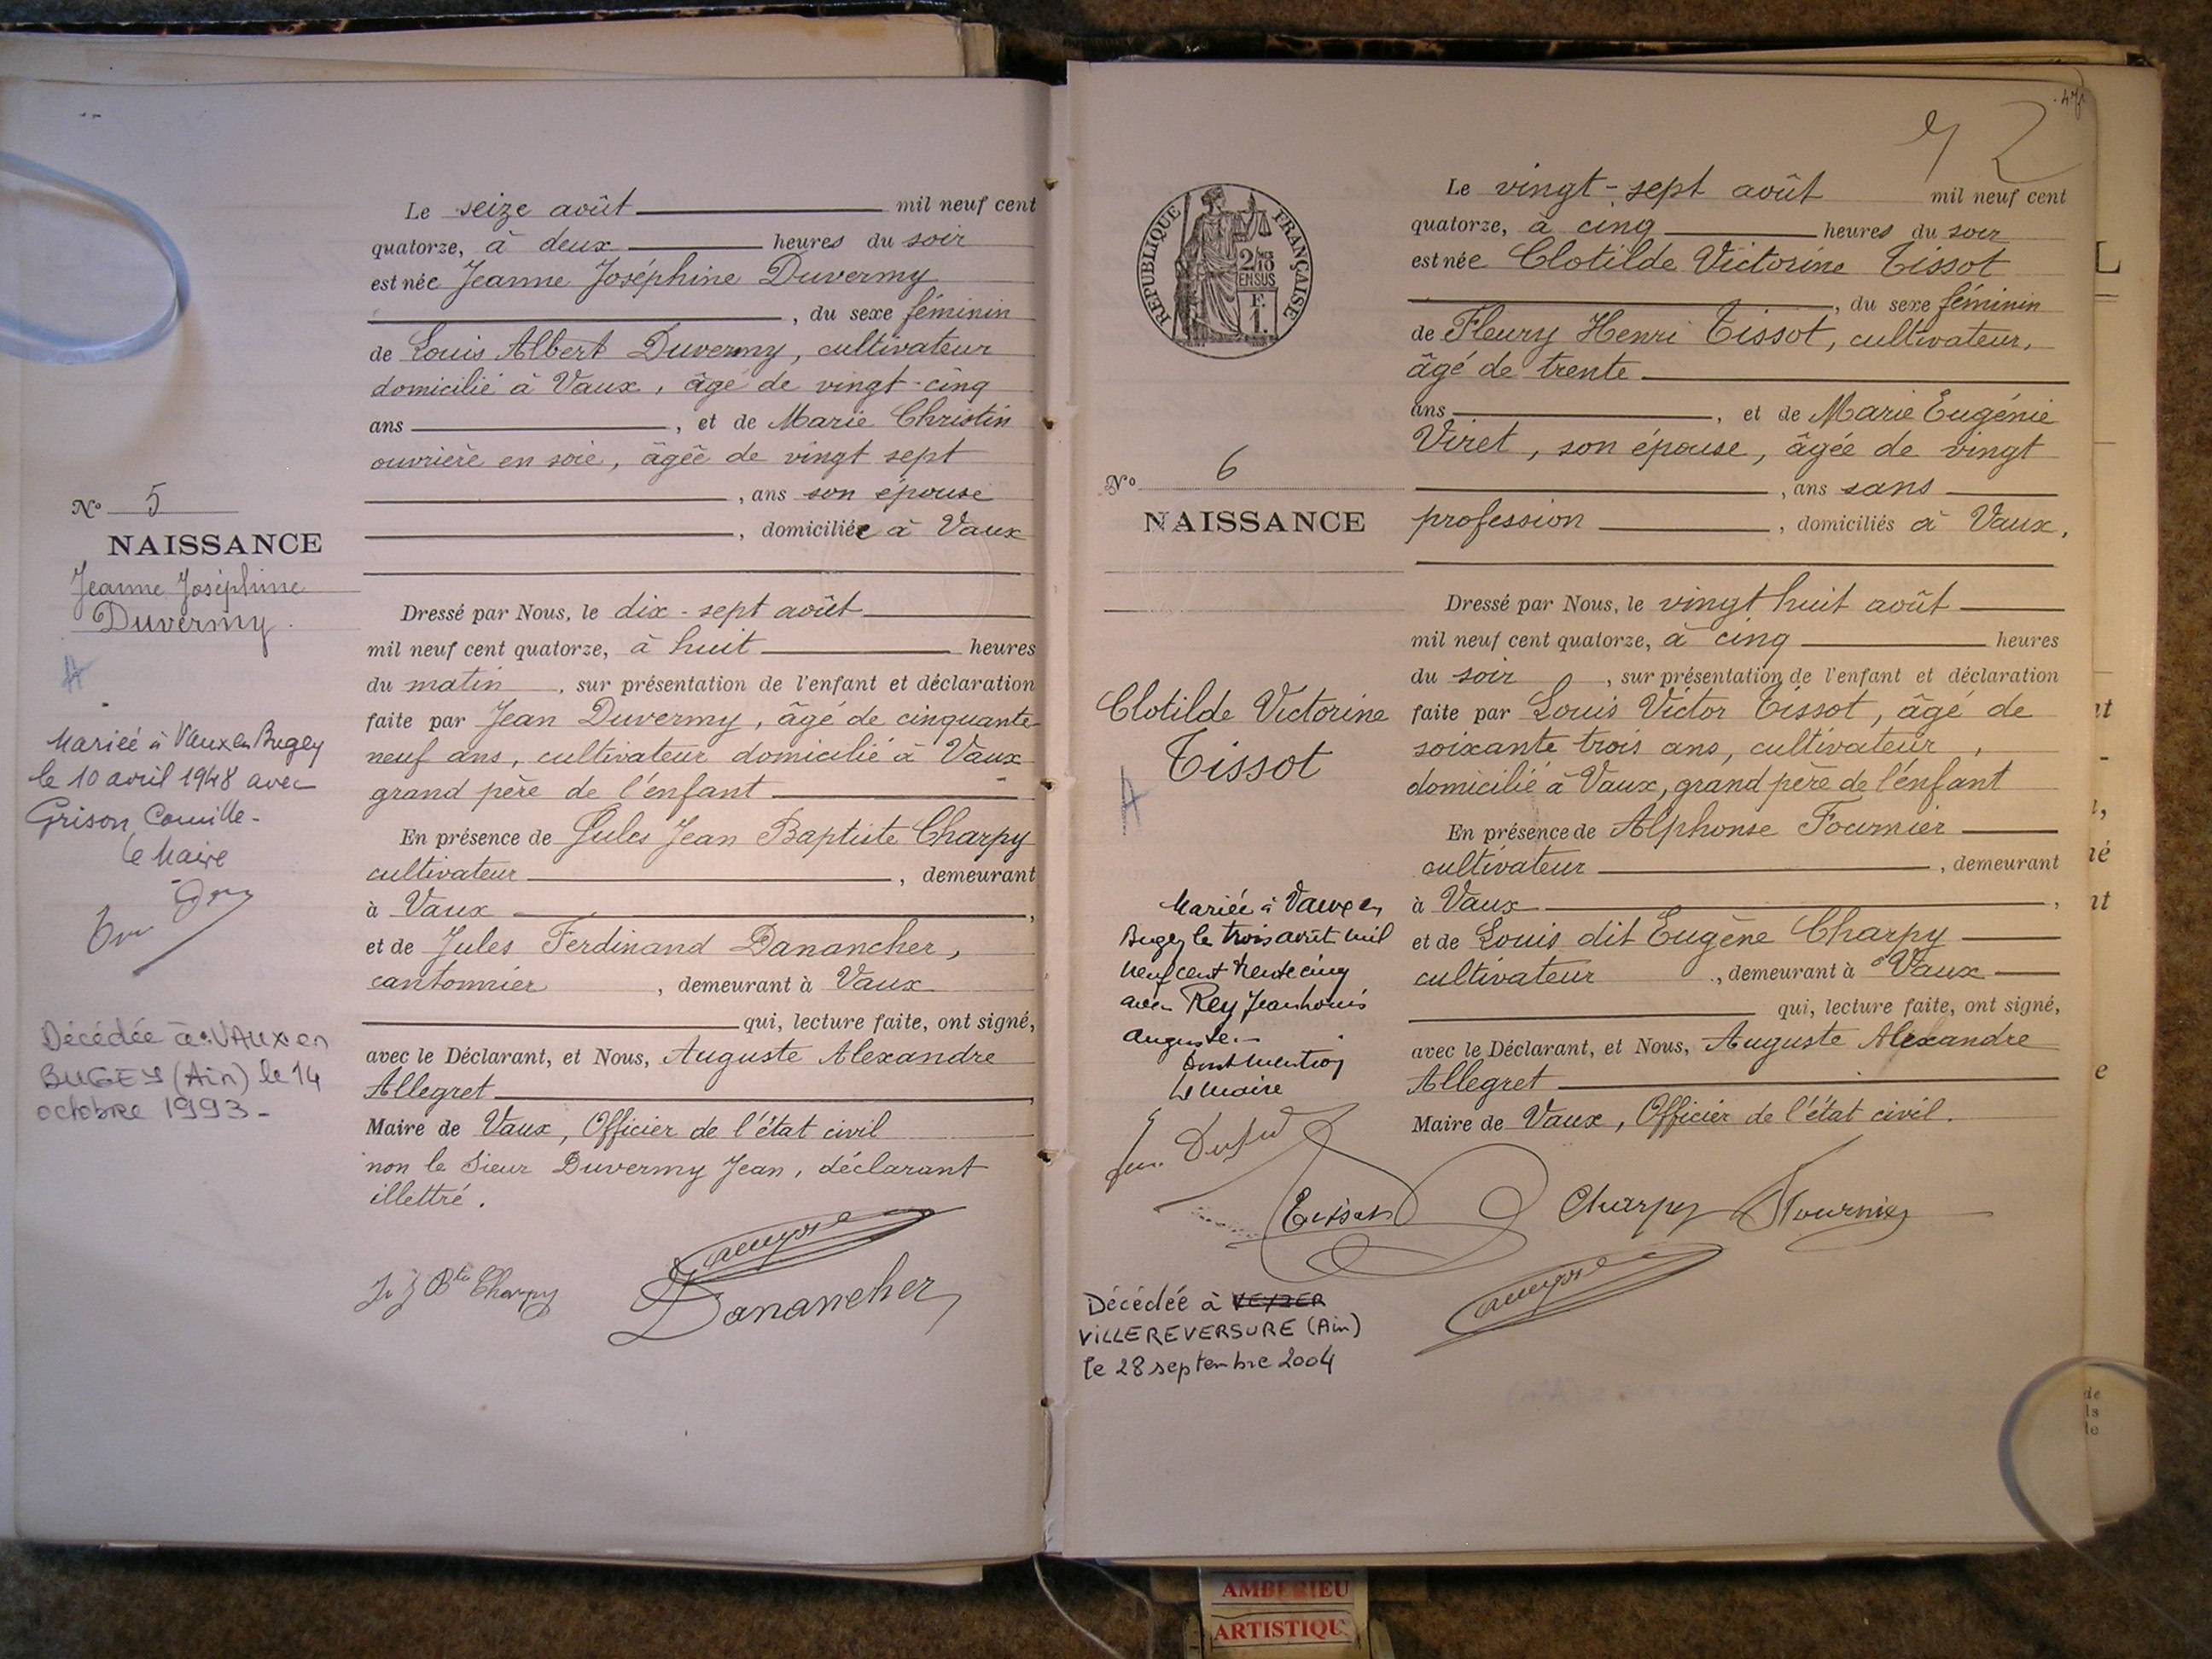 Le seize août mil neuf cent
quatorze, à deux heures du soir
est née Jeanne Joséphine Duvermy
, du sexe féminin
de Louis Albert Duvermy, cultivateur
domicilié à Vaux, âgé de vingt-cinq
ans , et de Marie Christin
ouvrière en soie, âgée de vingt sept
, ans son épouse
, domiciliée à Vaux
N° 5
NAISSANCE
Jeanne Joséphine
Duvermy.
A
Mariée à Vaux en Bugey
le 10 avril 1948 avec
Grison Camille-
le Maire
Décédée à VAUX en
BUGEY (Ain) le 14
octobre 1993-
Dressé par Nous, le dix-sept août
mil neuf cent quatorze, à huit heures
du matin , sur présentation de l'enfant et déclaration
faite par Jean Duvermy, âgé de cinquante-
neuf ans, cultivateur domicilié à Vaux
grand père de l'enfant
En présence de Jules Jean Baptiste Charpy
cultivateur , demeurant
à Vaux ,
et de Jules Ferdinand Danancher,
cantonnier , demeurant à Vaux
qui, lecture faite, ont signé,
avec le Déclarant, et Nous, Auguste Alexandre
Allegret ,
Maire de Vaux, Officier de l'état civil
non le Sieur Duvermy Jean, déclarant
illettré.
J. J Bte Charpy
Danancher
RÉPUBLIQUE FRANÇAISE
2/10
EN SUS
F.
1.
Le vingt-sept août mil neuf cent
quatorze, à cinq heures du soir
est née Clotilde Victorine Tissot
, du sexe féminin
de Fleury Henri Tissot, cultivateur,
âgé de trente
ans , et de Marie Eugénie
Viret, son épouse, âgée de vingt
, ans sans
profession , domiciliés à Vaux.
N° 6
NAISSANCE
Clotilde Victorine
Tissot
A
Mariée à Vaux en
Bugey le trois août mil
neuf cent trente cinq
avec Rey Jean Louis
Auguste.-
Dont mention
Le Maire
Décédée à
VILLEREVERSURE (Ain)
le 28 septembre 2004
Dressé par Nous, le vingt huit août
mil neuf cent quatorze, à cinq heures
du soir , sur présentation de l'enfant et déclaration
faite par Louis Victor Tissot, âgé de
soixante trois ans, cultivateur,
domicilié à Vaux, grand père de l'enfant
En présence de Alphonse Fournier
cultivateur , demeurant
à Vaux ,
et de Louis dit Eugène Charpy
cultivateur , demeurant à Vaux
qui, lecture faite, ont signé,
avec le Déclarant, et Nous, Auguste Alexandre
Allegret
Maire de Vaux, Officier de l'état civil.
Tissot Charpy Fournier
AMBERIEU
ARTISTIQU